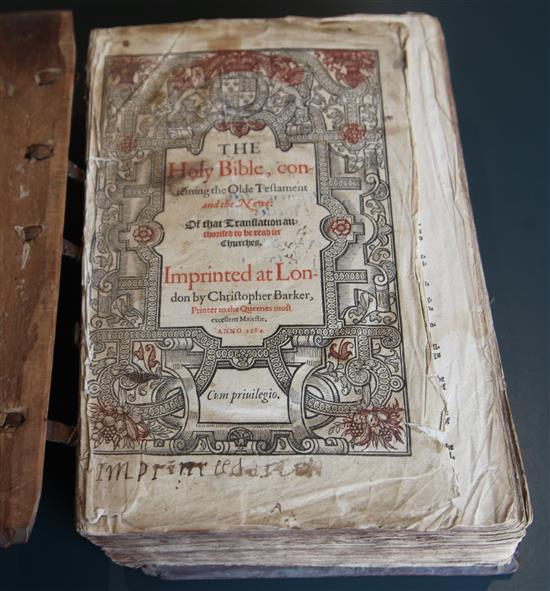 THE
Holy Bible, con-
teining the Olde Testament
and the Newe:
Of that Translation au-
thorised to be read in
Churches.
Imprinted at Lon-
don by Christopher Barker,
Printer to the Queenes most
excellent Maiestie.
ANNO 1584.
Cum priuilegio.
Imprinted